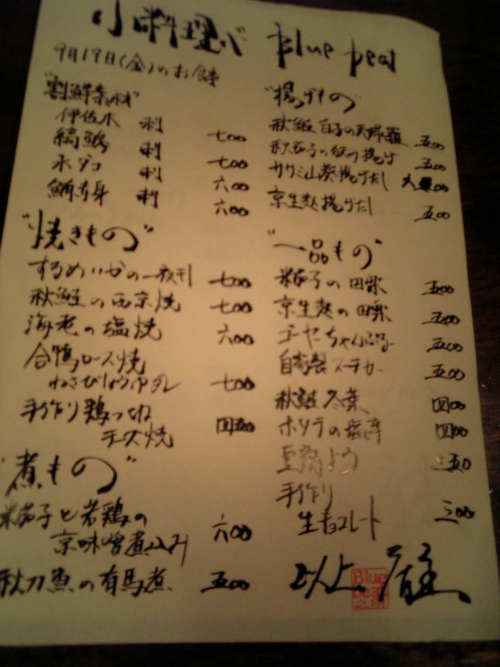 小料理 blue pearl
9月19日(金)のお
"割鮮
伊佐木 刺
縞鯵 刺 七〇〇
水ダコ 刺 六〇〇
鯛 身 刺 六〇〇
"焼きもの"
するめいかの一夜干 七〇〇
秋鮭の西京焼 七〇〇
海老の塩焼 六〇〇
合鴨ロース焼
わさびしょうゆダレ 七〇〇
手作り鶏つくね
チーズ焼 四五〇
"煮もの"
米茄子と若鶏の
京味噌煮込み 六〇〇
秋刀魚の有馬煮 五〇〇
"揚げもの"
秋鮭白子の天婦羅 五〇〇
揚げ 五〇〇
揚げだし
京生麩揚げだし 五〇〇
"一品もの"
米茄子の田楽 五〇〇
京生麩の田楽 五〇〇
ゴーヤーちゃんぷるー 五〇〇
自家製 五〇〇
秋鮭 四〇〇
四〇〇
豆腐よう 五〇
手作り
生チョコレート 三〇〇
以上 店主